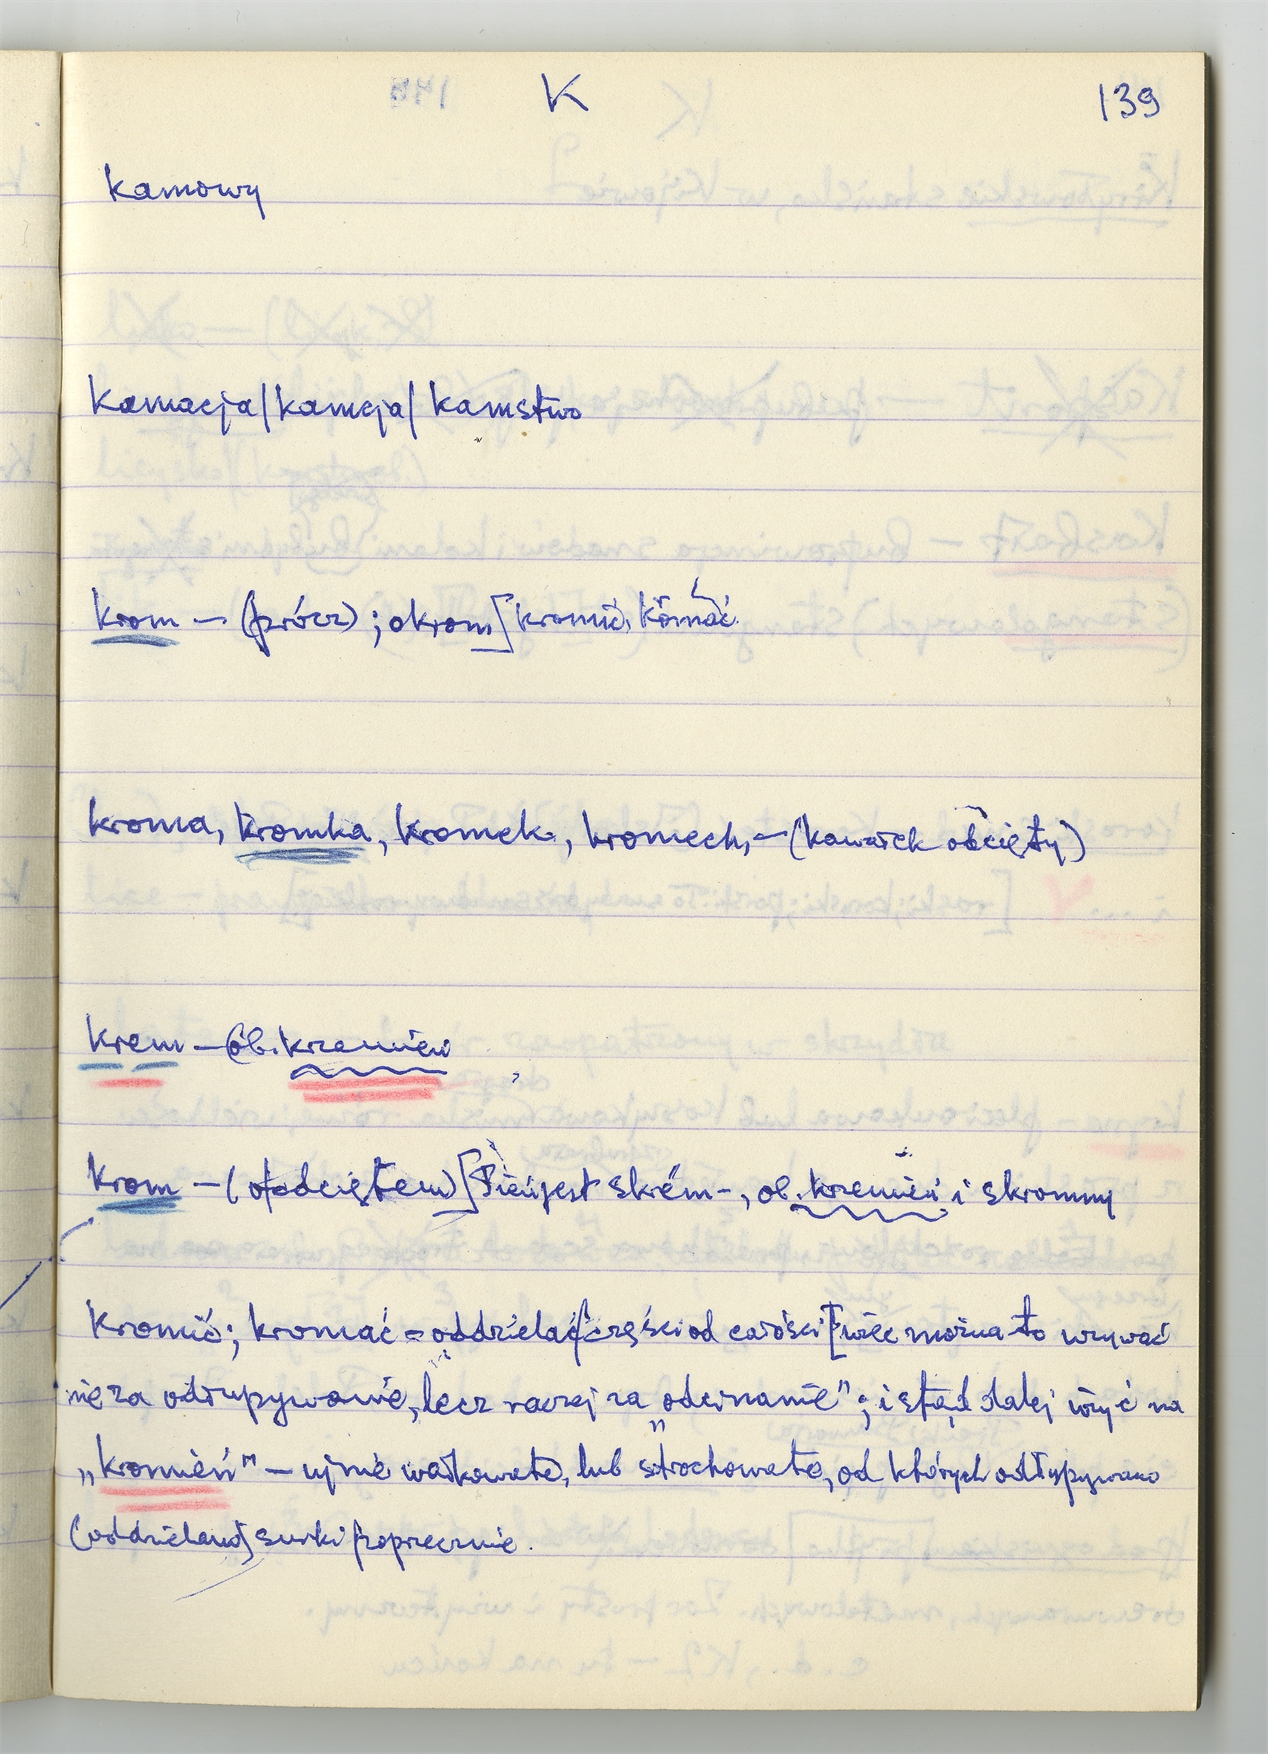 K 139
kamowy
kamacja/kamcja/kamstwo
krom – (prócz); okrom [kromić,
kroma, kromka, kromek, kromech, – (kawałek obcięty)
krem – (ob. krzemień
krom – [Pień jest skrēm-, ob. krzemień i skromny
kromić; kromać = oddzielać części od całości [więc można to używać
nie za odłupywanie, lecz raczej za „odcinanie”; i stąd dalej użyć na
„kromień” – ujmie wałkowate, lub strochowate, od których odłupywano
(oddzielano) poprzecznie.